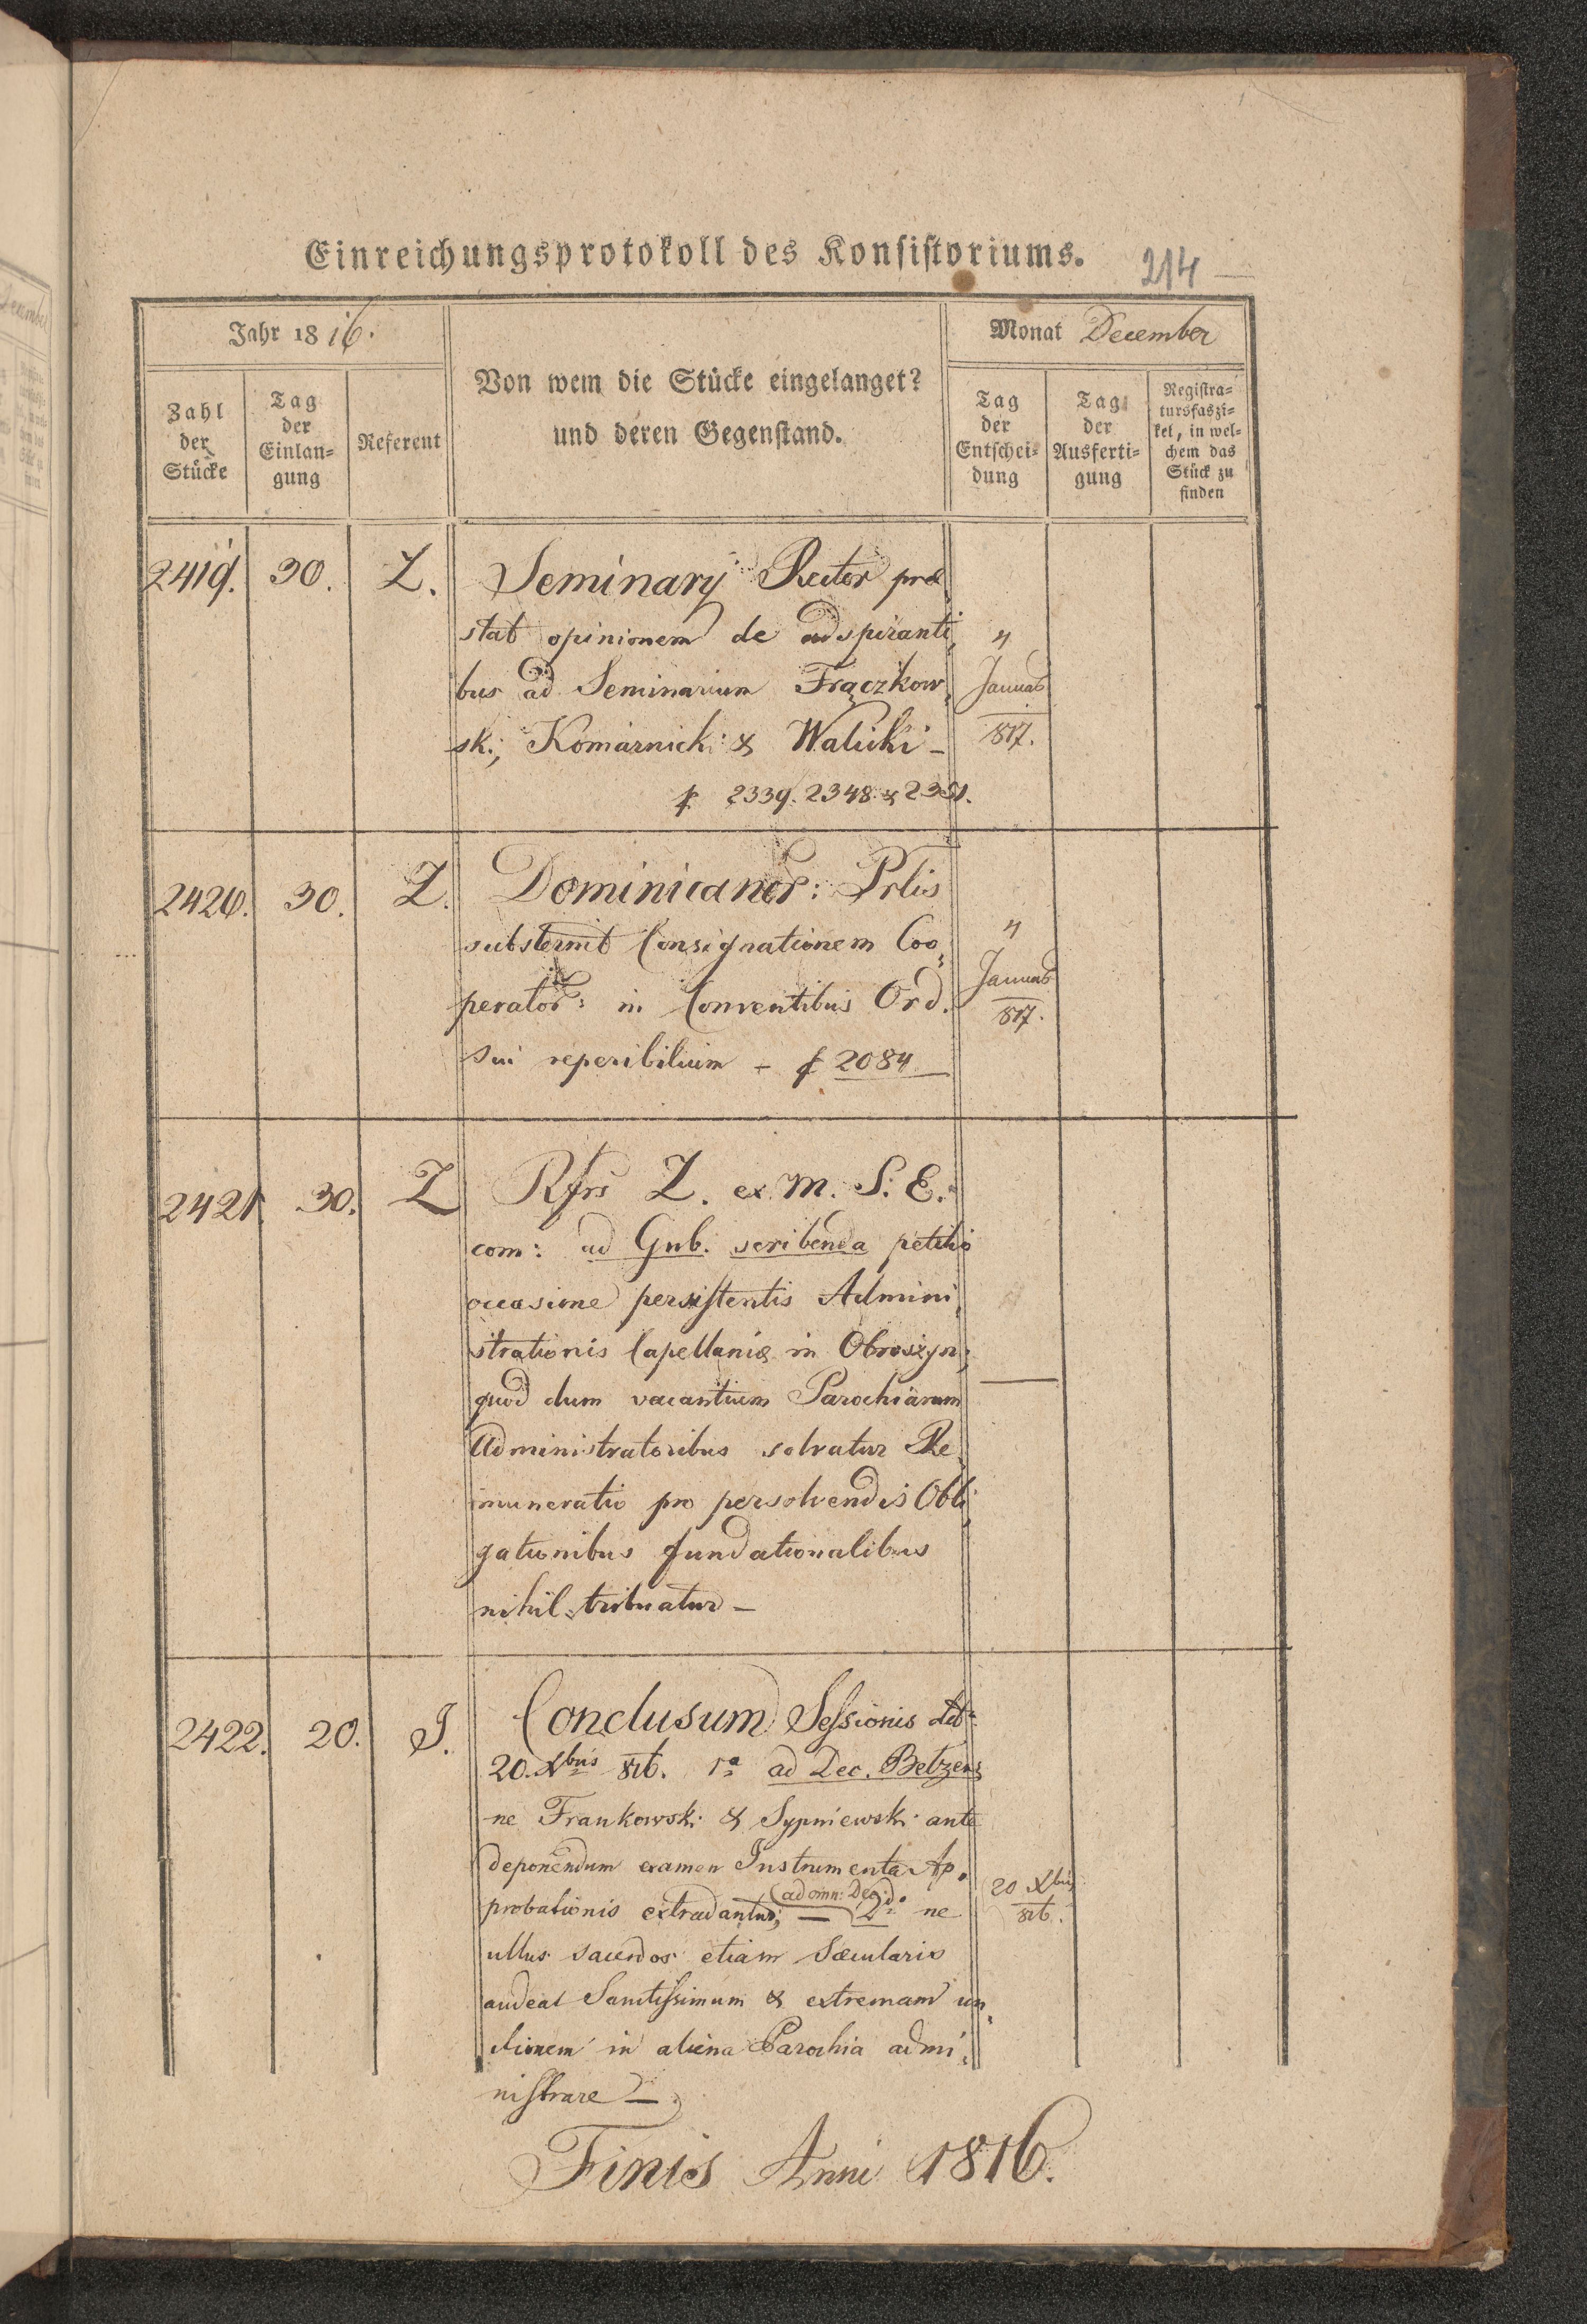 Einreichungsprotokoll des Konsistoriums.
214
Jahr 1816.
Monat December
Zahl der Stücke
Tag der Einlan=gung
Referent
Von wem die Stücke eingelanget?
und deren Gegenstand.
Tag der Entschei=dung
Tag der Ausferti=gung
Registra=tursfaszi=kel, in wel=chem das Stück zu finden
2419. 30. Z. Seminarÿ Rector præ
stat opinionem de adspiranti
bus ad Seminarium Frączkow
ski, Komarnicki & Walicki –
2339. 2348 & 2351.
4 Januar 817.
2420. 30. Z. Dominicanor: Prlis
substernit Consignationem Coo
perator: in Conventibus Ord.
sui reperibilium – 2084
4 Januar 817.
2421. 30. Z Rfrs Z. ex. M. S. E.
com: ad Gub. scribenda petitio
occasione persistentis Admini
strationis Capellaniæ in Obroszyn;
quod dum vacantium Parochiarum
Administratoribus solvatur Re
muneratio pro persolvendis Obli
gationibus fundationalibus
nihil tribuatur –
2422. 20. J. Conclusum Sessionis
20. Xbris 816. 1º ad Dec. Betzens
ne Frankowski & Sypniewski ante
deponendum examen Instrumenta Ap
probationis extradantur; – (ad omn: Dec.) 2do ne
ullus sacerdos etiam Sæcularis
audeat Sanctissimum & extremam un
ctionem in aliena Parochia admi
nistrare –
20 Xbris 816.
Finis Anni 1816.